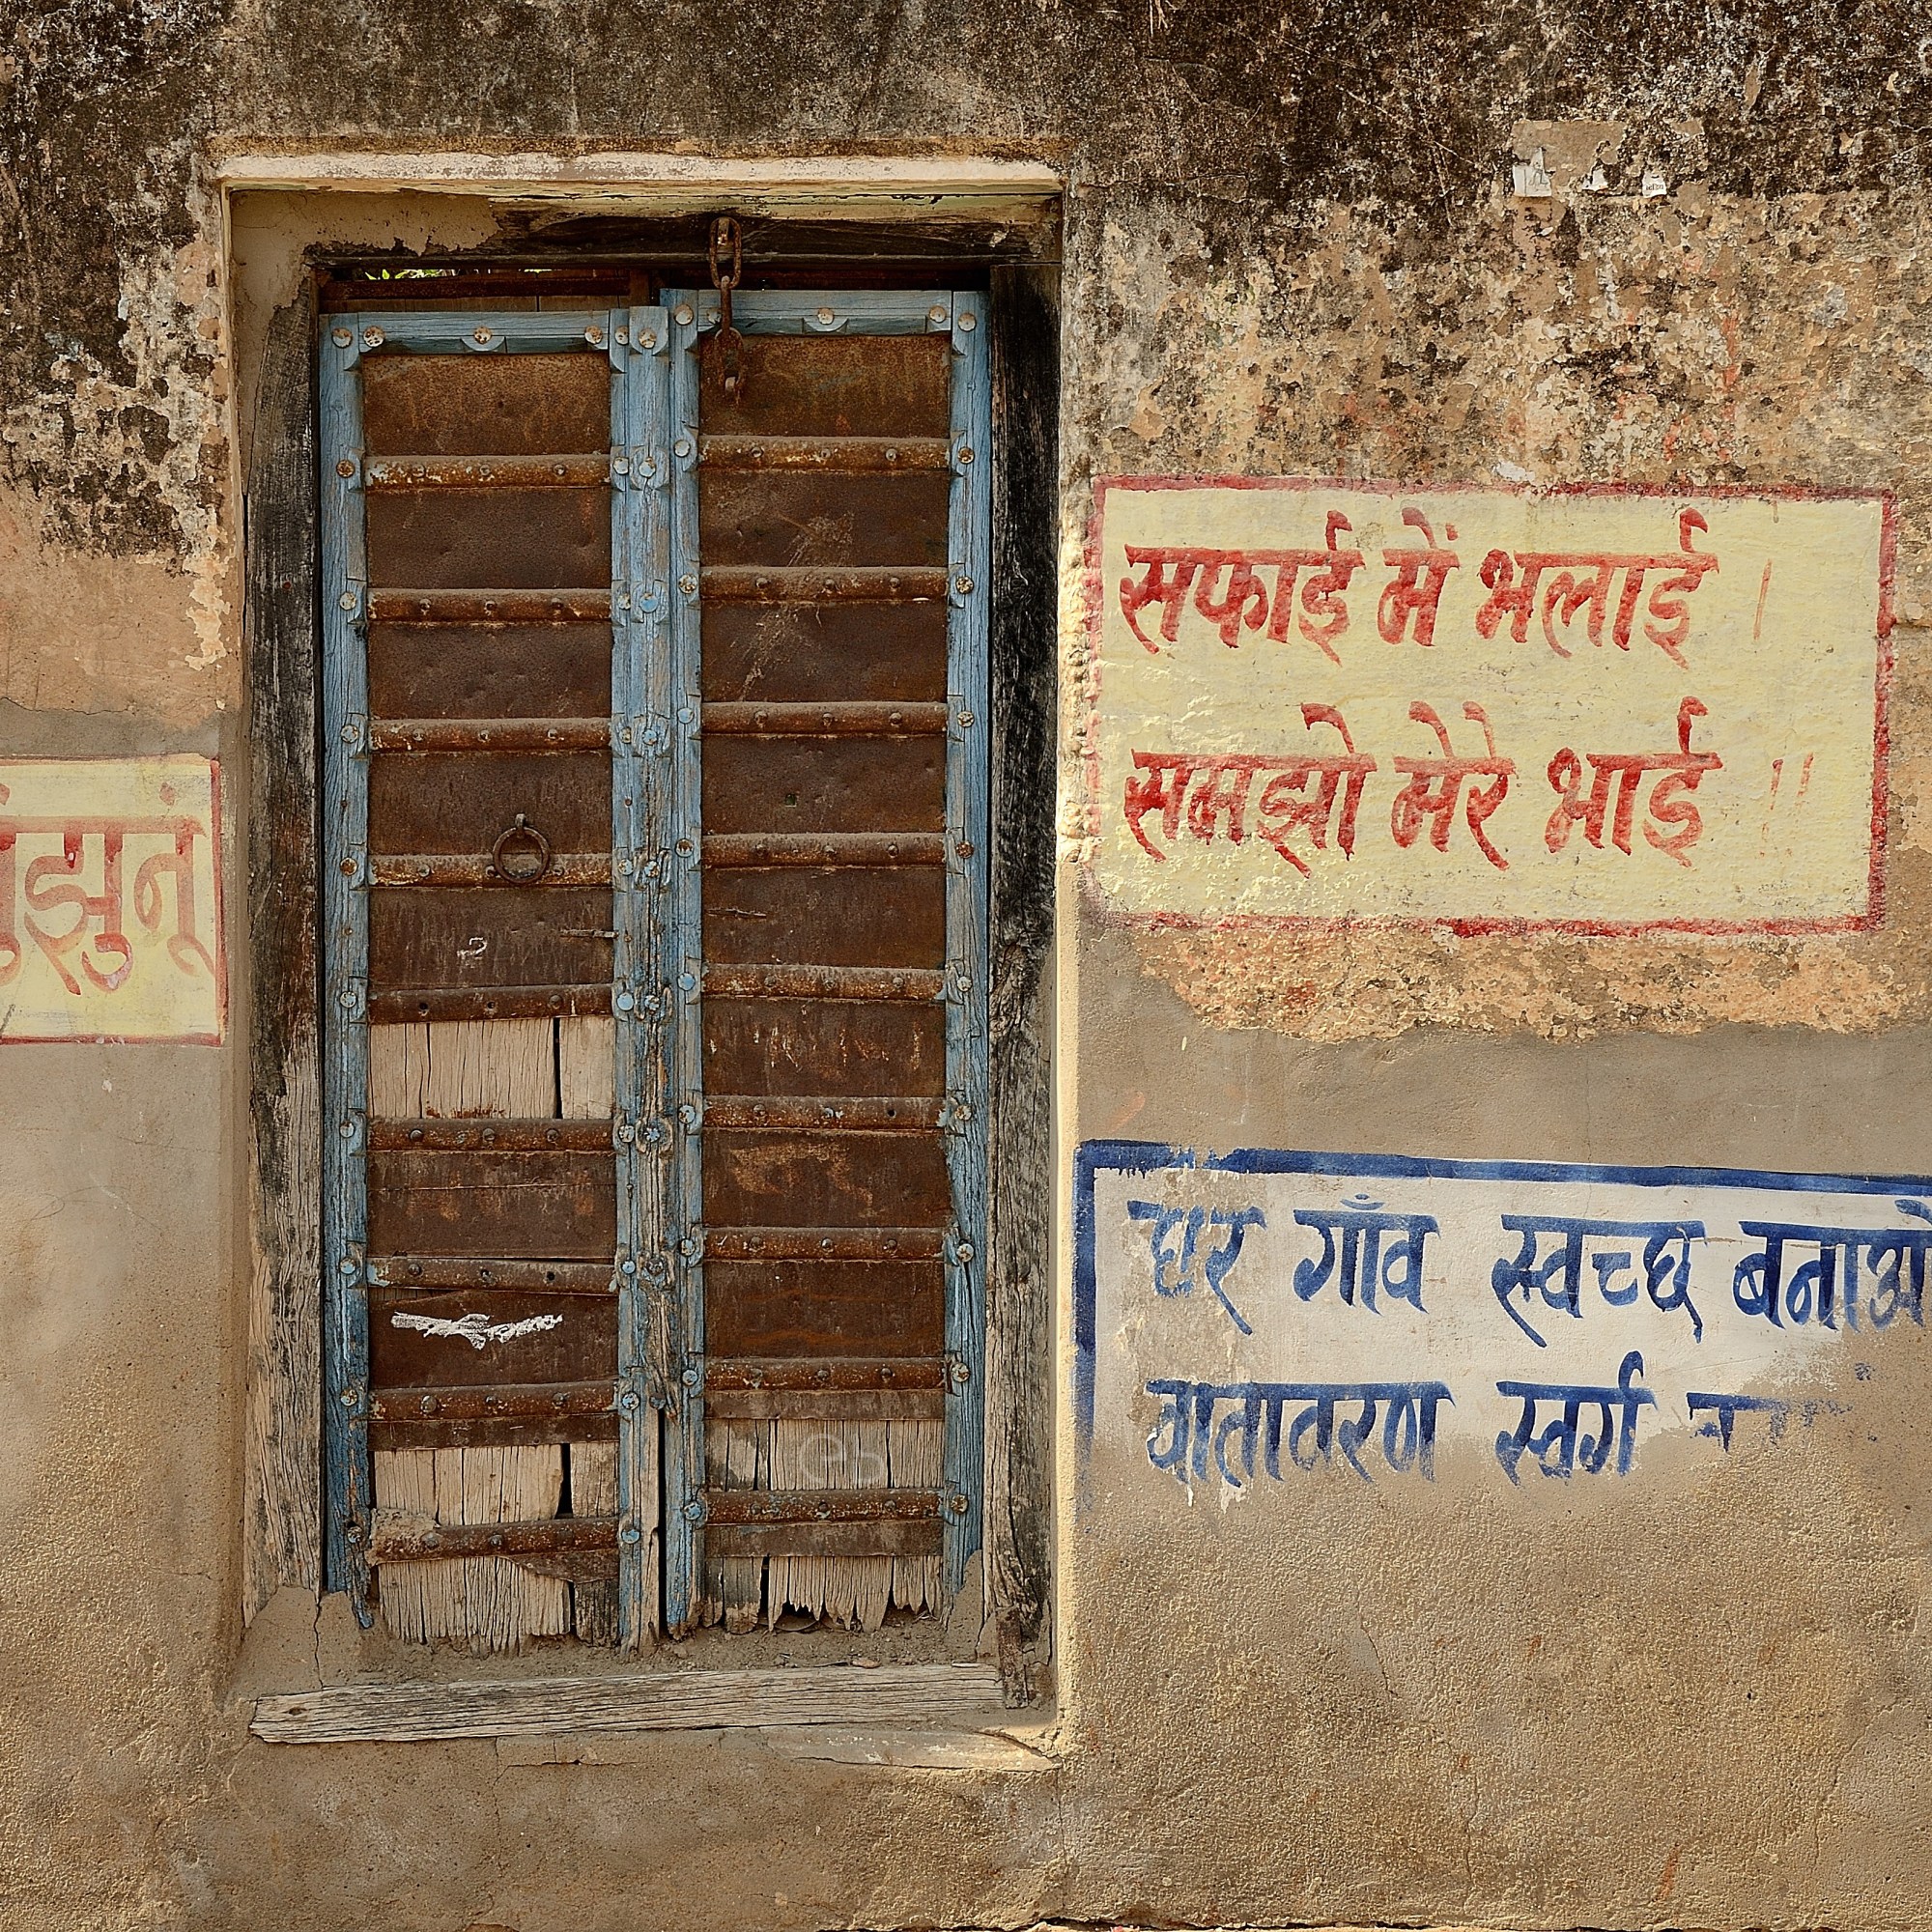 झुनूं
सफाई में भलाई ।
समझो मेरे भाई ।।
घर गाँव स्वच्छ बनाओ
वातावरण स्वर्ग